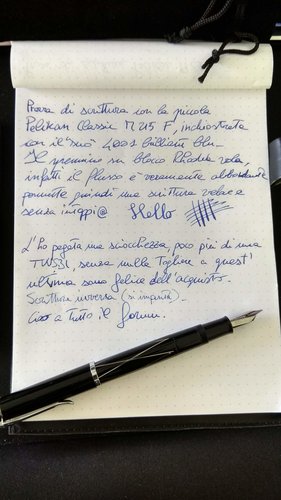 Prova di scrittura con la piccola
Pelikan Classic M 215 F, inchiostrata
con il "suo" 4001 Brilliant Blu.
Il pennino su blocco Rhodia vola,
infatti il flusso è veramente abbondante
permette quindi una scrittura veloce e
senza intoppi@ Hello
L'ho pagata una sciocchezza, poco più di una
TWSBI, senza nulla togliere a quest'
ultima sono felice dell'acquisto.
Scrittura inversa (si impunta).
Ciao a tutto il forum.